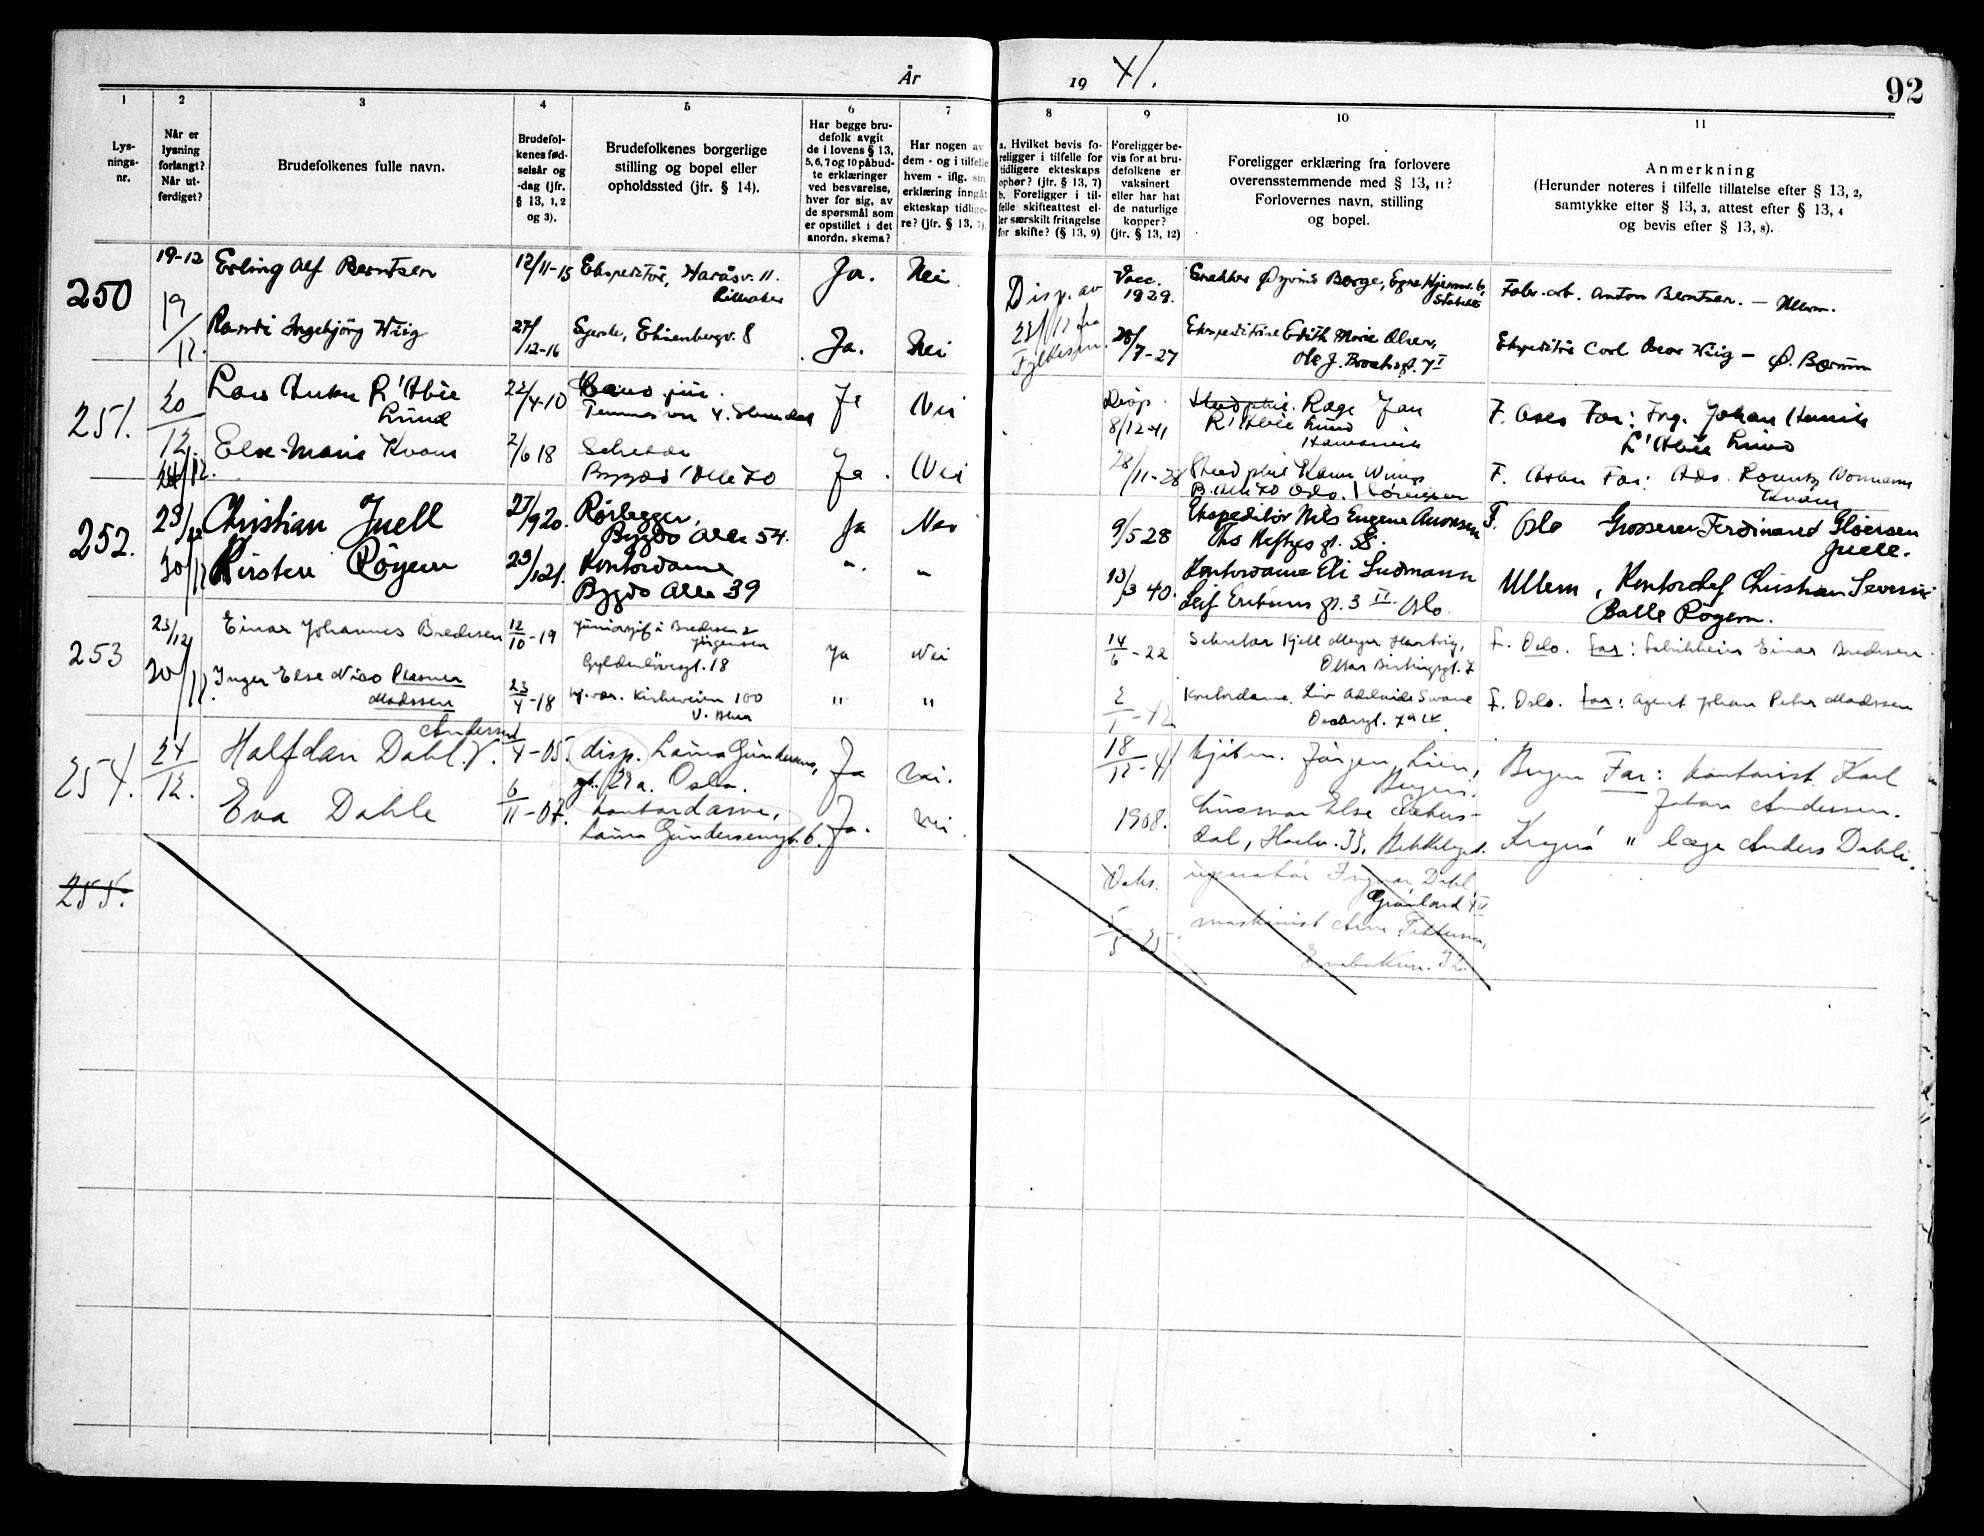 År
19 41.
92
1
2
3
4
5
6
7
8
9
10
11
Lys-
nings-
nr.
Når er
lysning
forlangt?
Når ut-
ferdiget?
Brudefolkenes fulle navn.
Brudefol-
kenes fød-
selsår og
-dag (jfr.
§ 13, 1, 2
og 3).
Brudefolkenes borgerlige
stilling og bopel eller
opholdssted (jtr. § 14).
Har begge bru-
defolk avgit
de i lovens § 13,
5, 6, 7 og 10 påbud-
te erklæringer
ved besvarelse,
hver for sig, av
de spørsmål som
er opstillet i det
anordn. skema?
Har nogen av
dem - og i tilfelle
hvem - iflg. sin
erklæring inngåt
ekteskap tidlige-
re? (jfr. § 13, 7).
a. Hvilket bevis fo-
religger i tilfelle for
tidligere ekteskaps
ophør? (jfr. § 13, 7)
b. Foreligger i til-
felle skifteattest el-
ler særskilt fritagelse
for skifte? (§ 13, 9)
Foreligger be-
vis for at bru-
defolkene er
vaksinert
eller har hat
de naturlige
kopper?
(jtr. § 13, 12)
Foreligger erklæring fra forlovere
overensstemmende med § 13, 11?
Forlovernes navn, stilling
og bopel.
Anmerkning
(Herunder noteres i tilfelle tillatelse efter § 13, 2,
samtykke efter § 13, 3, attest efter § 13, 4
og bevis efter § 13, 8).
250
19-12
19/12.
Erling Alf Berntsen
12/11-15
Ekspeditör, Haråsv. 11.
Ja.
Nei
Disp. av
22/12 fra
Vacc.
1929.
Snekker Øyvind Borge,
Fabr. arb. Anton Berntsen. — Ullern.
Randi Ingebjörg Wiig
27/12-16
8
Ja.
Nei
28/7-27
Ekspeditrise Edith Marie Olsen,
Ole J. Brochsgt. 7 I
Ekspeditör Carl Oscar Wiig — Ø. Bærum
251.
20/12.
Lars Anker L'Abée
Lund
22/4-10
Cand. jur.
Ja
Nei
Disp.
8/12-41
Stud. phil. Rage Jan
L'Abée Lund
F. Oslo Far: Ing. Johan Henrik
L'Abée Lund
24/12.
Else-Marie Kvam
2/6 18
Bygdø Alle 70
Ja.
Nei
28/11-28
B. Alle 70 Oslo.
F. Asker Far: Adv. Normann
Kvam
252.
23/12
Christian Juell
27/9 20.
Rørlegger,
Bygdø Alle 54.
Ja
Nei
9/5 28
Ekspeditör Nils Eugene Aronsen
Ths Heftyes gt. 58.
F. Oslo Grosserer Ferdinand Gløersen
Juell.
30/12
Kirsten Röyem
23/1 21.
Kontordame
Bygdö Alle 39
"
"
13/3 40.
Kontordame Eli Ludmann
Leif Eriksons gt. 3 II Oslo.
Ullern, Kontorchef Christian Severin
Balle Rögem.
253
23/12
Einar Johannes Bredesen
12/10-19
Juniorsjef i Bredesen &
Jörgensen
Gyldenlövesgt. 18
Ja
Nei
14/6-22
Sekretær Kjell Meyer Hartvig,
F. Oslo. Far: Fabrikkeier Einar Bredesen.
30/12.
Inger Else Nico Plesner
Madssen
23/4-18
Kirkeveien 100
V. Aker
"
"
2/1-42
Kontordame. Liv Adelaide Svane
Oscarsgt.
F. Oslo. Far: Agent Johan Peter Madssen
254.
24/12.
Halfdan Dahl. V.
Andersen
1/4-05.
disp. Laura Gundersens
gt. Oslo.
Ja
nei.
18/12-41
kjöbm. Jörgen Lien,
Bergen.
Bergen Far: kontorist Karl
Johan Andersen.
Eva Dahle
6/11-07.
kontordame,
Laura Gundersensgt. 6.
Ja.
nei
1908.
husmor Else
dal,
" læge Anders Dahle.
255.
Oslo.
Ingvar Dahl
Grönland
5/5 25.
maskinist Arne